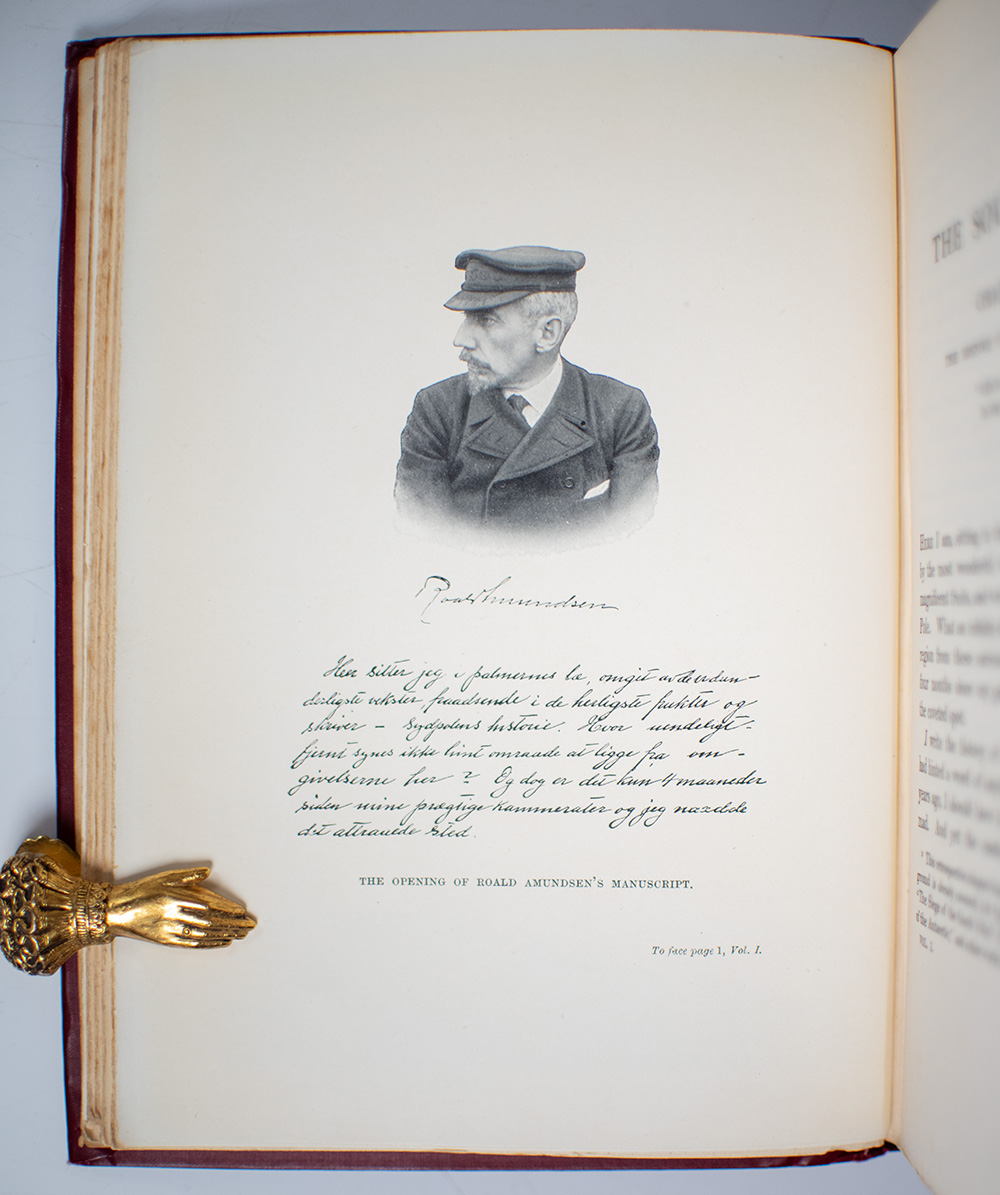 Roald Amundsen
Her sitter jeg i palmernes læ, omgit av de vidun-
derligste vekster, fraadsende i de herligste frukter og
skriver – sydpolens historie. Hvor uendeligt
fjernt synes ikke hint omraade at ligge fra om-
givelserne her? Og dog er det kun 4 maaneder
siden mine prægtige kammerater og jeg naadde
det attraaede sted.
THE OPENING OF ROALD AMUNDSEN'S MANUSCRIPT.
To face page 1, Vol. I.
THE SOU
HERE I am, sitting in
by the most wonderful
magnificent fruits, and
Pole. What an
region from these
four months since
the coveted spot.
I write the history
had hinted a word of
years ago, I should have
mad. And yet the
VOL. I.